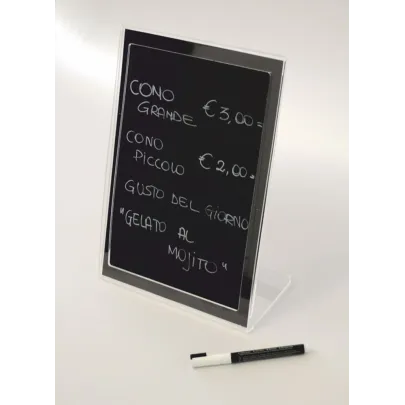 CONO
GRANDE € 3,00=
CONO
PICCOLO € 2,00=
GUSTO DEL GIORNO
"GELATO AL
MOJITO"